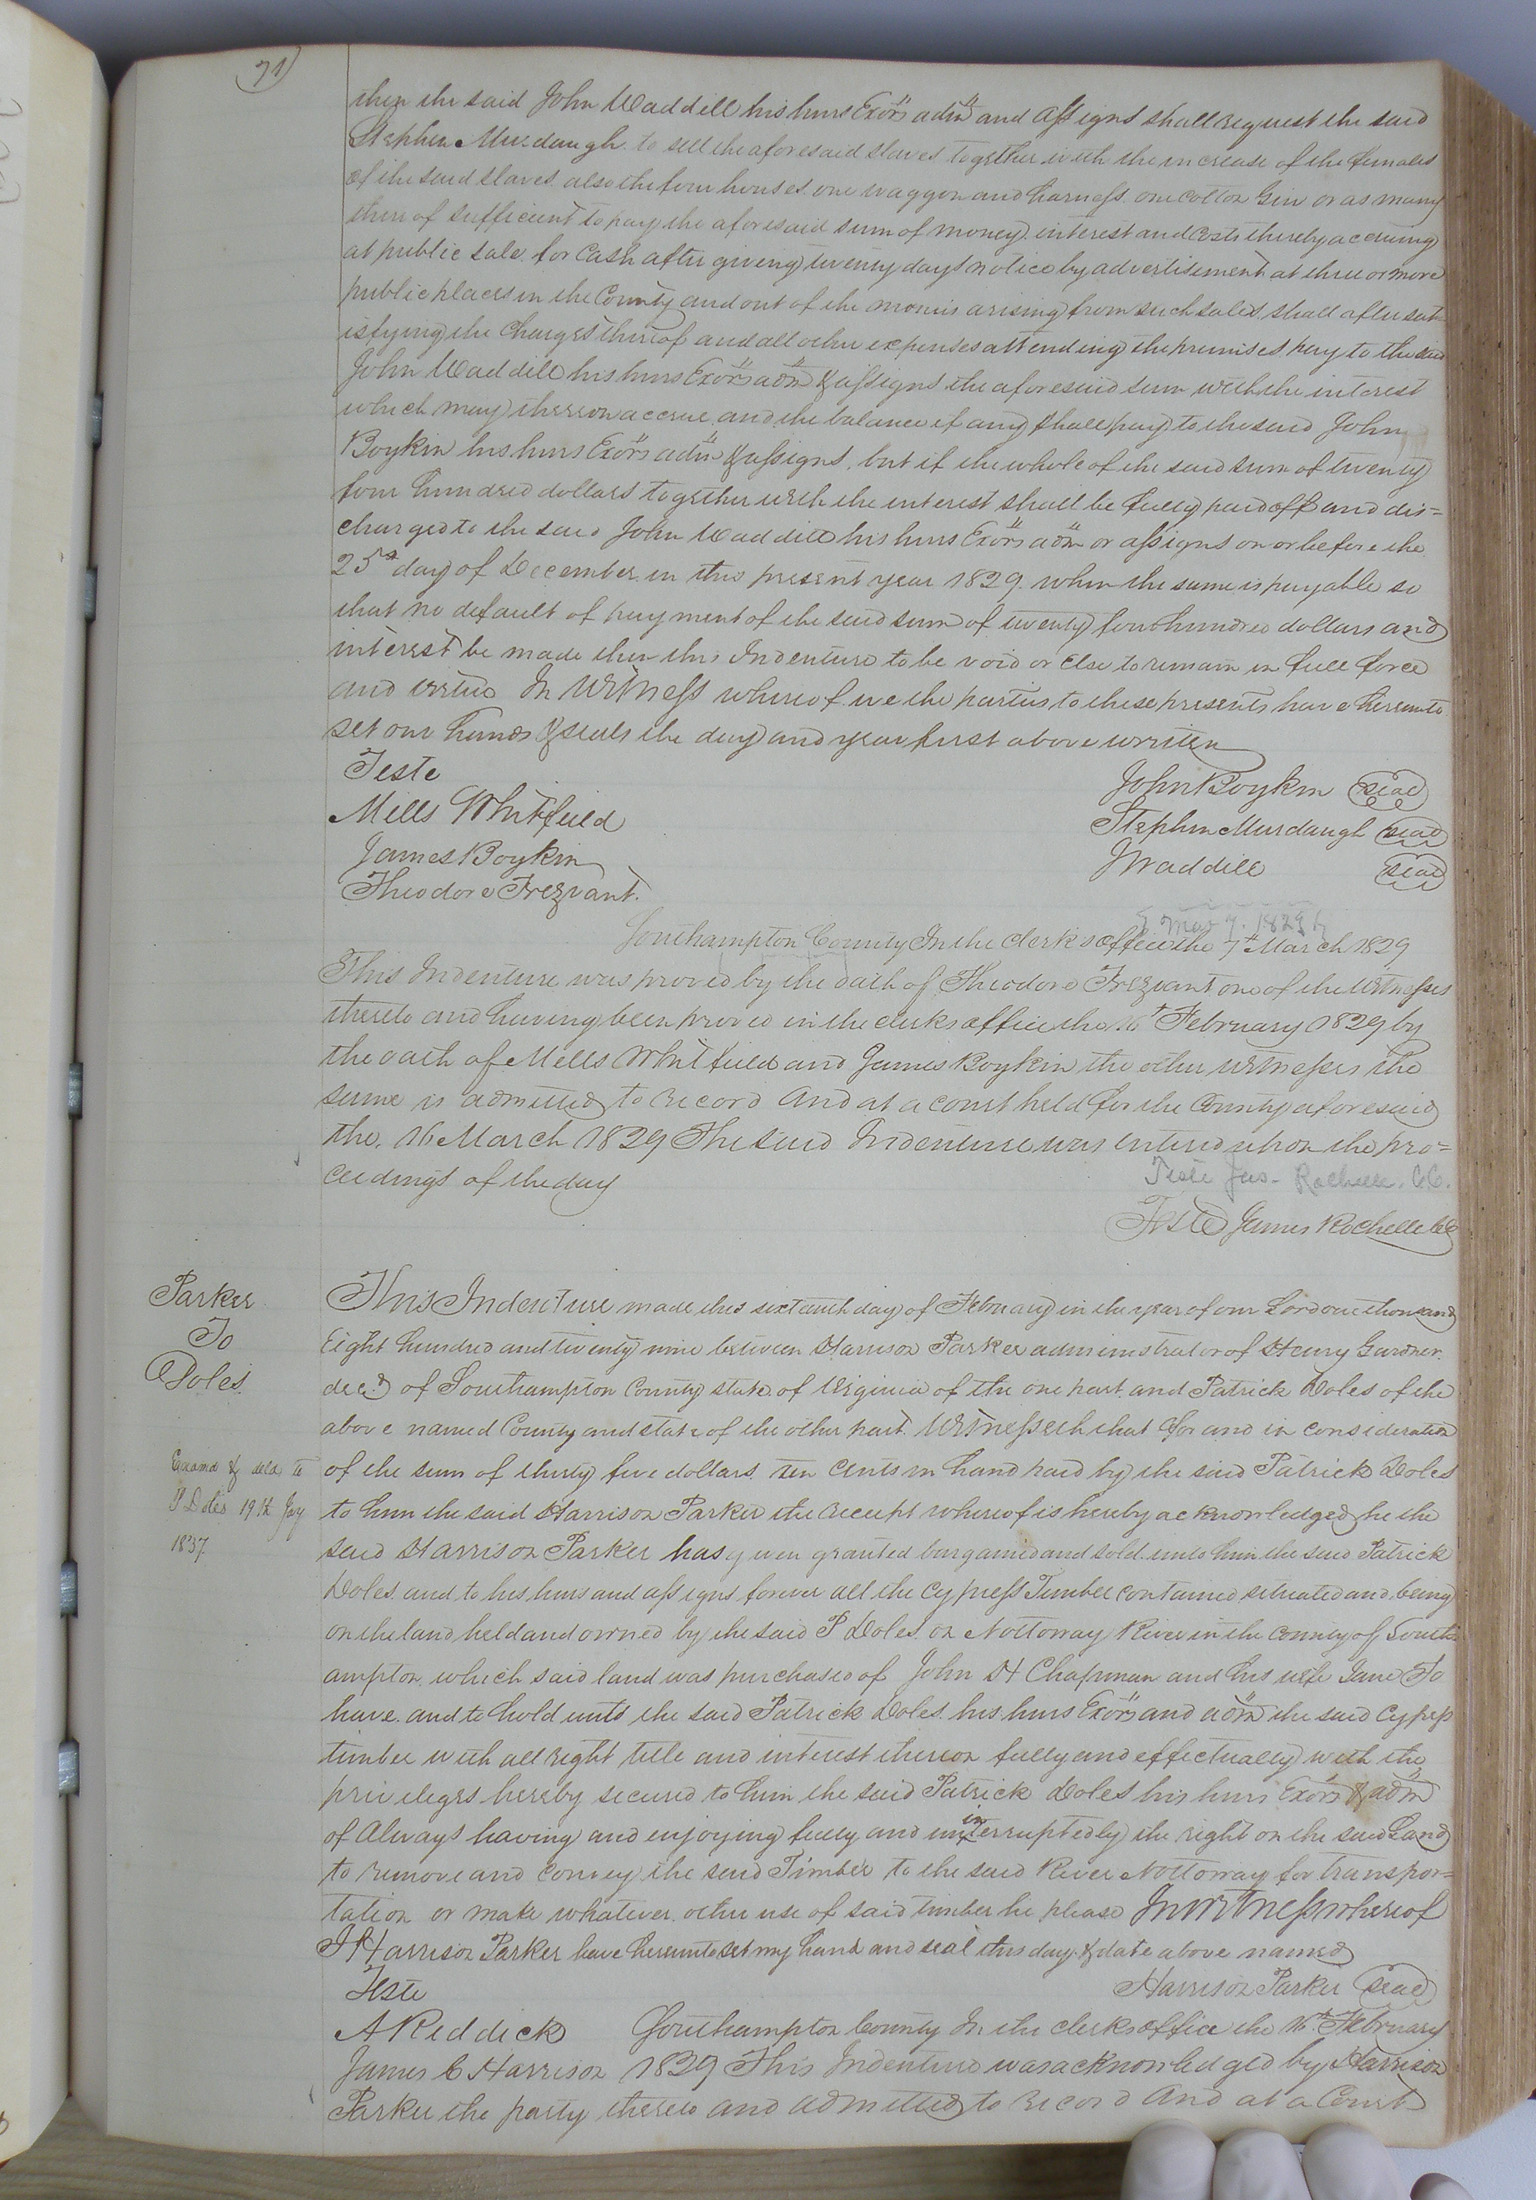 71
then the said John Waddill his heirs Exors adm and assigns shall request the said
Stephen Murdaugh to sell the aforesaid slaves together with the increase of the females
of the said slaves also the four horses one waggon and harness one Cotton Gin or as many
there of sufficient to pay the aforesaid sum of money interest and Costs thereby accruing
at public sale for Cash after giving twenty days notice by advertisement at three or more
public places in the County and out of the monies arising from such sales shall after sat-
isfying the Charges thereof and all other expenses attending the premises pay to the said
John Waddill his heirs Exors adm & assigns the aforesaid sum with the interest
which may thereon accrue and the balance if any shall pay to the said John
Boykin his heirs Exors adm & assigns, but if the whole of the said sum of twenty
four hundred dollars together with the interest shall be fully paid off and dis=
charged to the said John Waddill his heirs Exors adm or assigns on or before the
25th day of December in this present year 1829 when the same is payable so
that no default of payment of the said sum of twenty four hundred dollars and
interest be made then this Indenture to be void or Else to remain in full force
and virtue In Witness whereof we the parties to these presents have hereunto
set our hands & seals the day and year first above written
Teste
John Boykin Seal
Mills Whitfield
Stephen Murdaugh seal
James Boykin
J Waddill seal
Theodore Trezvant.
Mar 7. 1829
Southampton County In the clerks office the 7th March 1829
This Indenture was proved by the oath of Theodore Trezvant one of the Witnesses
thereto and having been proved in the clerks office the 16th February 1829 by
the oath of Mills Whitfield and James Boykin the other Witnesses the
same is admitted to record And at a court held for the County aforesaid
the 16 March 1829 The said Indenture was entered upon the pro=
ceedings of the day
Teste Jas. Rochelle. C.C.
Teste James Rochelle CC
Parker
To
Doles
Examd & deld to
P Doles 19th Jay
1837
This Indenture made this sixteenth day of February in the year of our Lord one thousand
Eight hundred and twenty nine between Harrison Parker administrator of Henry Gardner
decd of Southampton County state of Virginia of the one part and Patrick Doles of the
above named County and state of the other part Witnesseth that for and in consideration
of the sum of thirty five dollars ten cents in hand paid by the said Patrick Doles
to him the said Harrison Parker the receipt whereof is hereby acknowledged he the
said Harrison Parker has given granted bargained and sold unto him the said Patrick
Doles and to his heirs and assigns forever all the Cypress Timber contained situated and being
on the land held and owned by the said P Doles on Nottoway River in the county of South
ampton which said land was purchased of John H Chapman and his wife Jane To
have and to hold unto the said Patrick Doles his heirs Exors and adm the said Cypress
timber with all right title and interest thereon fully and effectually with the
privileges hereby secured to him the said Patrick Doles his heirs Exors & adm
of Always having and enjoying fully and uninterruptedly the right on the said Land
to remove and convey the said Timber to the said River Nottoway for transpor=
tation or make whatever other use of said timber he please In Witness whereof
I Harrison Parker have hereunto set my hand and seal this day & date above named
Teste
Harrison Parker Seal
A Riddick
James C Harrison
Southampton County In the clerks office the 16th February
1829 This Indenture was acknowledged by Harrison
Parker the party thereto and admitted to record And at a Court